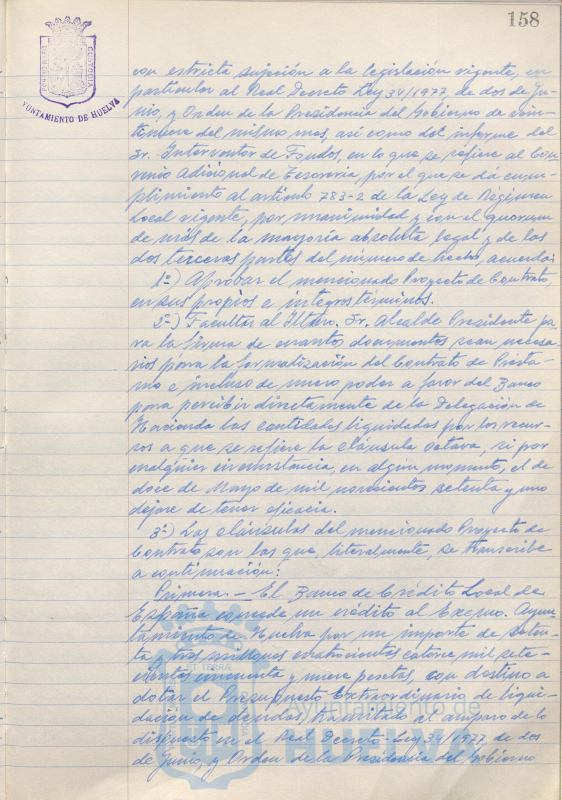 158
PORTUS MARIS
CUSTODIA
AYUNTAMIENTO DE HUELVA
con estricta sujeción a la legislación vigente, en
particular al Real Decreto Ley 34/1977, de dos de Ju-
nio, y Orden de la Presidencia del Gobierno de vein-
tinueve del mismo mes, así como del informe del
Sr. Interventor de Fondos, en lo que se refiere al Con-
venio adicional de Tesorería, por el que se dá cum-
plimiento al artículo 783-2 de la Ley de Régimen
Local vigente, por unanimidad y con el quorum
de más de la mayoría absoluta legal y de las
dos terceras partes del número de hecho, acuerda:
1º) Aprobar el mencionado Proyecto de Contrato,
en sus propios e integros términos.
2º) Facultar al Iltmo. Sr. Alcalde Presidente pa-
ra la firma de cuantos documentos sean necesa-
rios para la formalización del Contrato de Présta-
mo e incluso de nuevo poder a favor del Banco
para percibir directamente de la Delegación de
Hacienda las cantidades liquidadas por los recur-
sos a que se refiere la cláusula octava, si por
cualquier circunstancia, en algún momento, el de
doce de Mayo de mil novecientos setenta y uno
dejare de tener eficacia.
3º) Las cláusulas del mencionado Proyecto de
Contrato son las que, literalmente, se transcribe
a continuación:
Primera. - El Banco de Crédito Local de
España concede un crédito al Excmo. Ayun-
tamiento de Huelva por un importe de seten-
ta y tres millones cuatrocientas catorce mil sete-
cientas cincuenta y nueve pesetas, con destino a
dotar el Presupuesto Extraordinario de liqui-
dación de deudas, tramitado al amparo de lo
dispuesto en el Real Decreto Ley 34/1977, de dos
de Junio, y Orden de la Presidencia del Gobierno
Ayuntamiento de
HUELVA